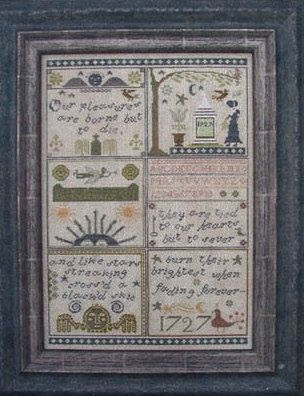 Our pleasures
are borne but
to die.
they are tied
to our hearts
but to sever
and like stars
streaking
cross'd a
black'd skie
burn their
brightest when
fading forever...
1727